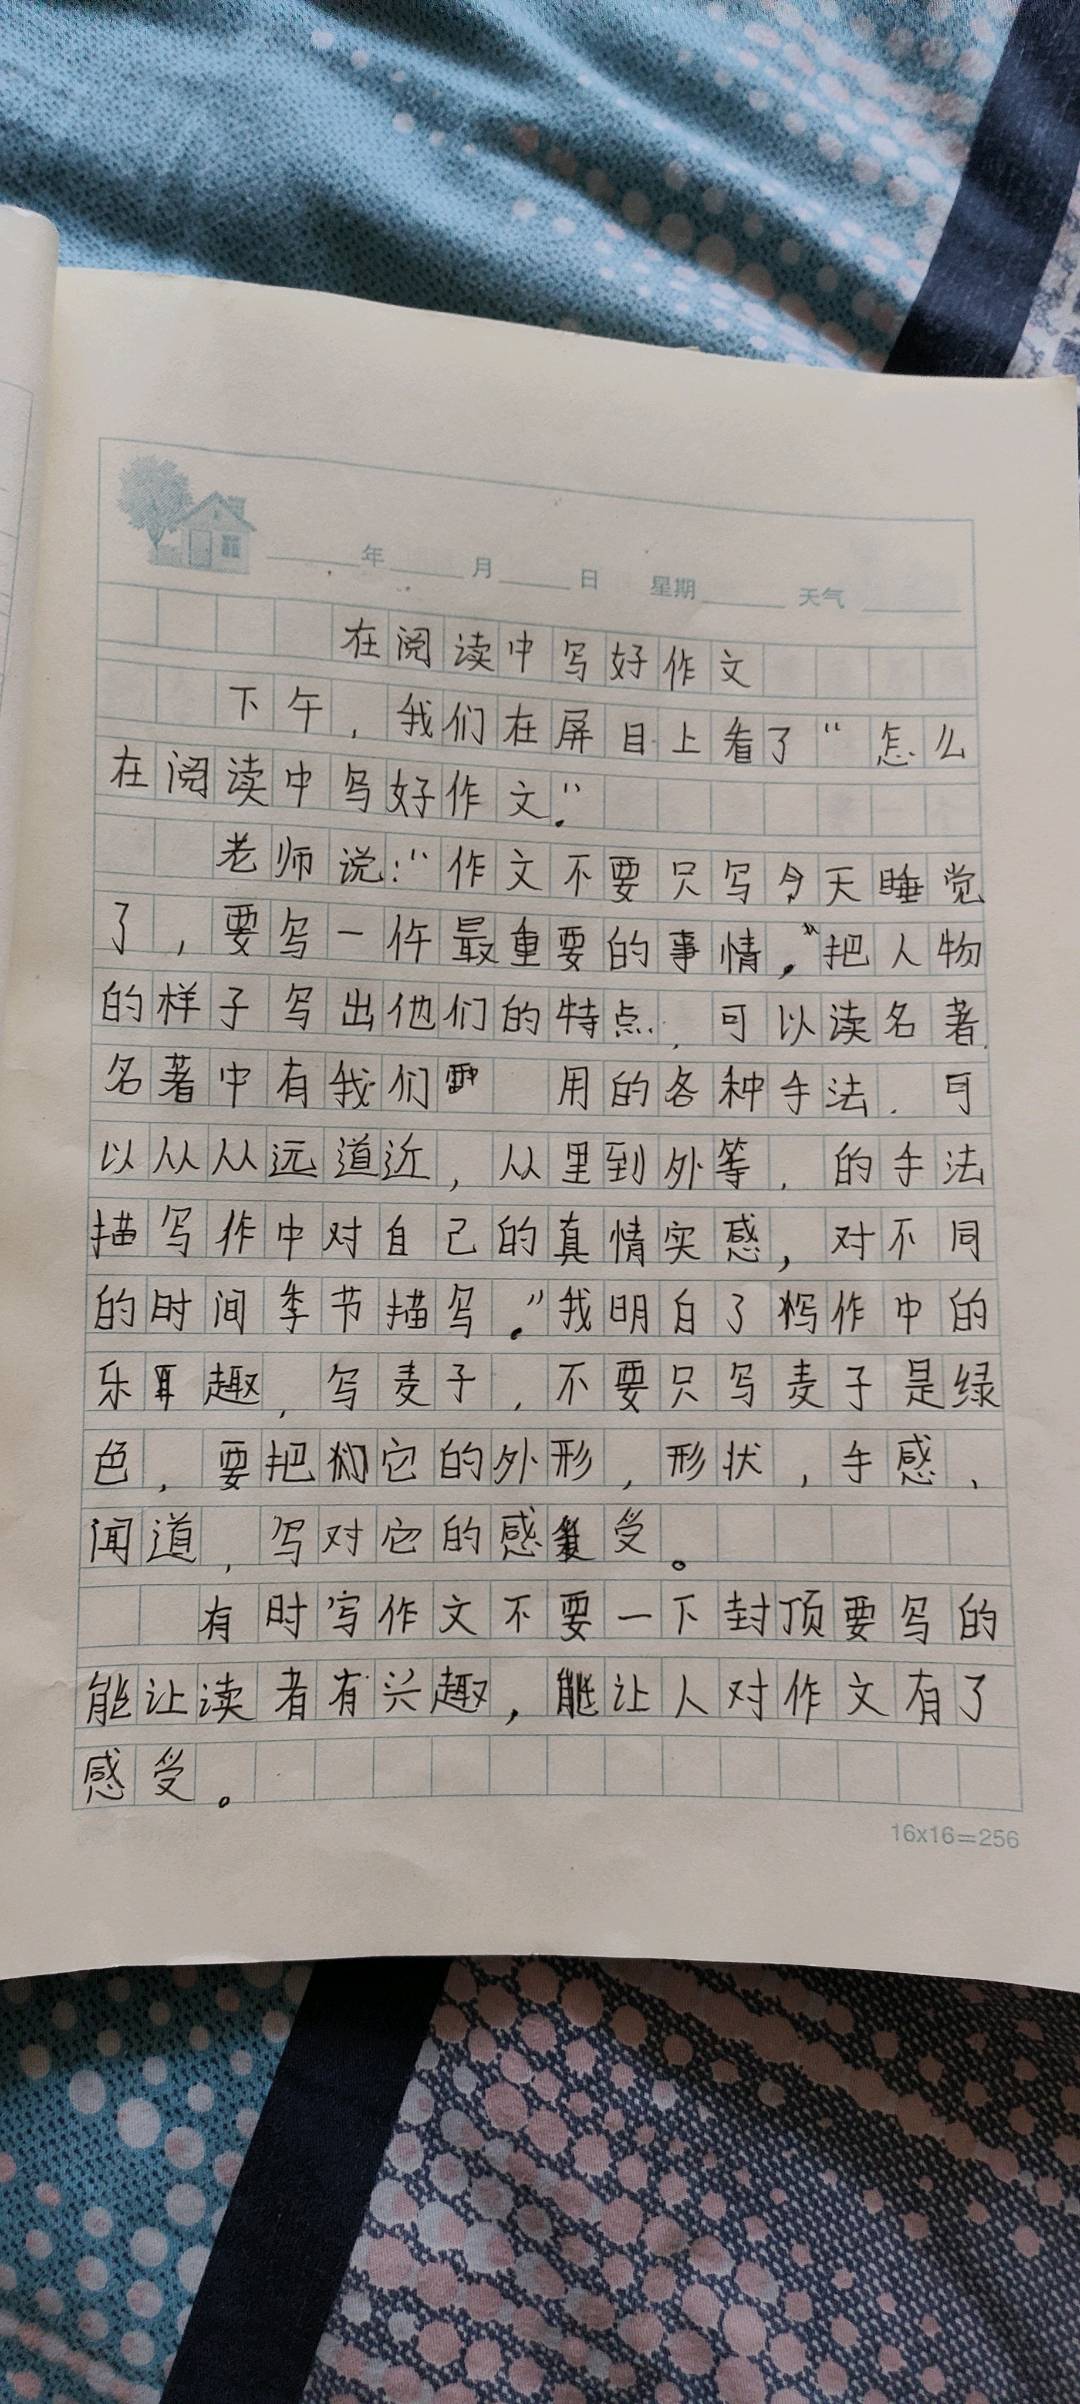 年 月 日 星期 天气
在阅读中写好作文
下午，我们在屏目上看了“怎么
在阅读中写好作文。”
老师说：“作文不要只写今天睡觉
了，要写一件最重要的事情。”把人物
的样子写出他们的特点，可以读名著，
名著中有我们 用的各种手法．可
以从从远道近，从里到外等，的手法
描写作中对自己的真情实感，对不同
的时间季节描写。”我明白了 作中的
乐 趣，写麦子，不要只写麦子是绿
色，要把 它的外形，形状，手感，
闻道，写对它的感 受。
有时写作文不要一下封顶要写的
能让读者有兴趣，能让人对作文有了
感受。
16x16=256